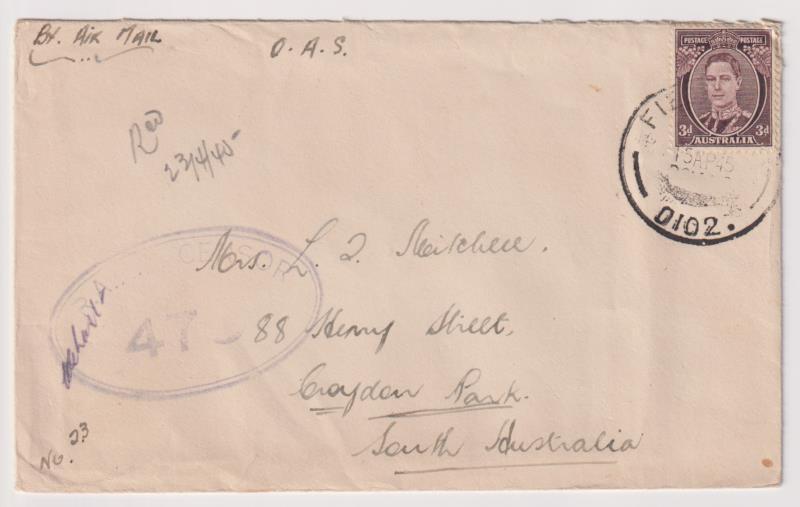 By. Air Mail
O. A. S.
POSTAGE POSTAGE
3d 3d
AUSTRALIA
15 AP 45
0102.
Rec'd
23/4/45
CENSOR
47
Mrs. L. J. Mitchell.
88 Henry Street,
Croydon Park.
South Australia
No. 23